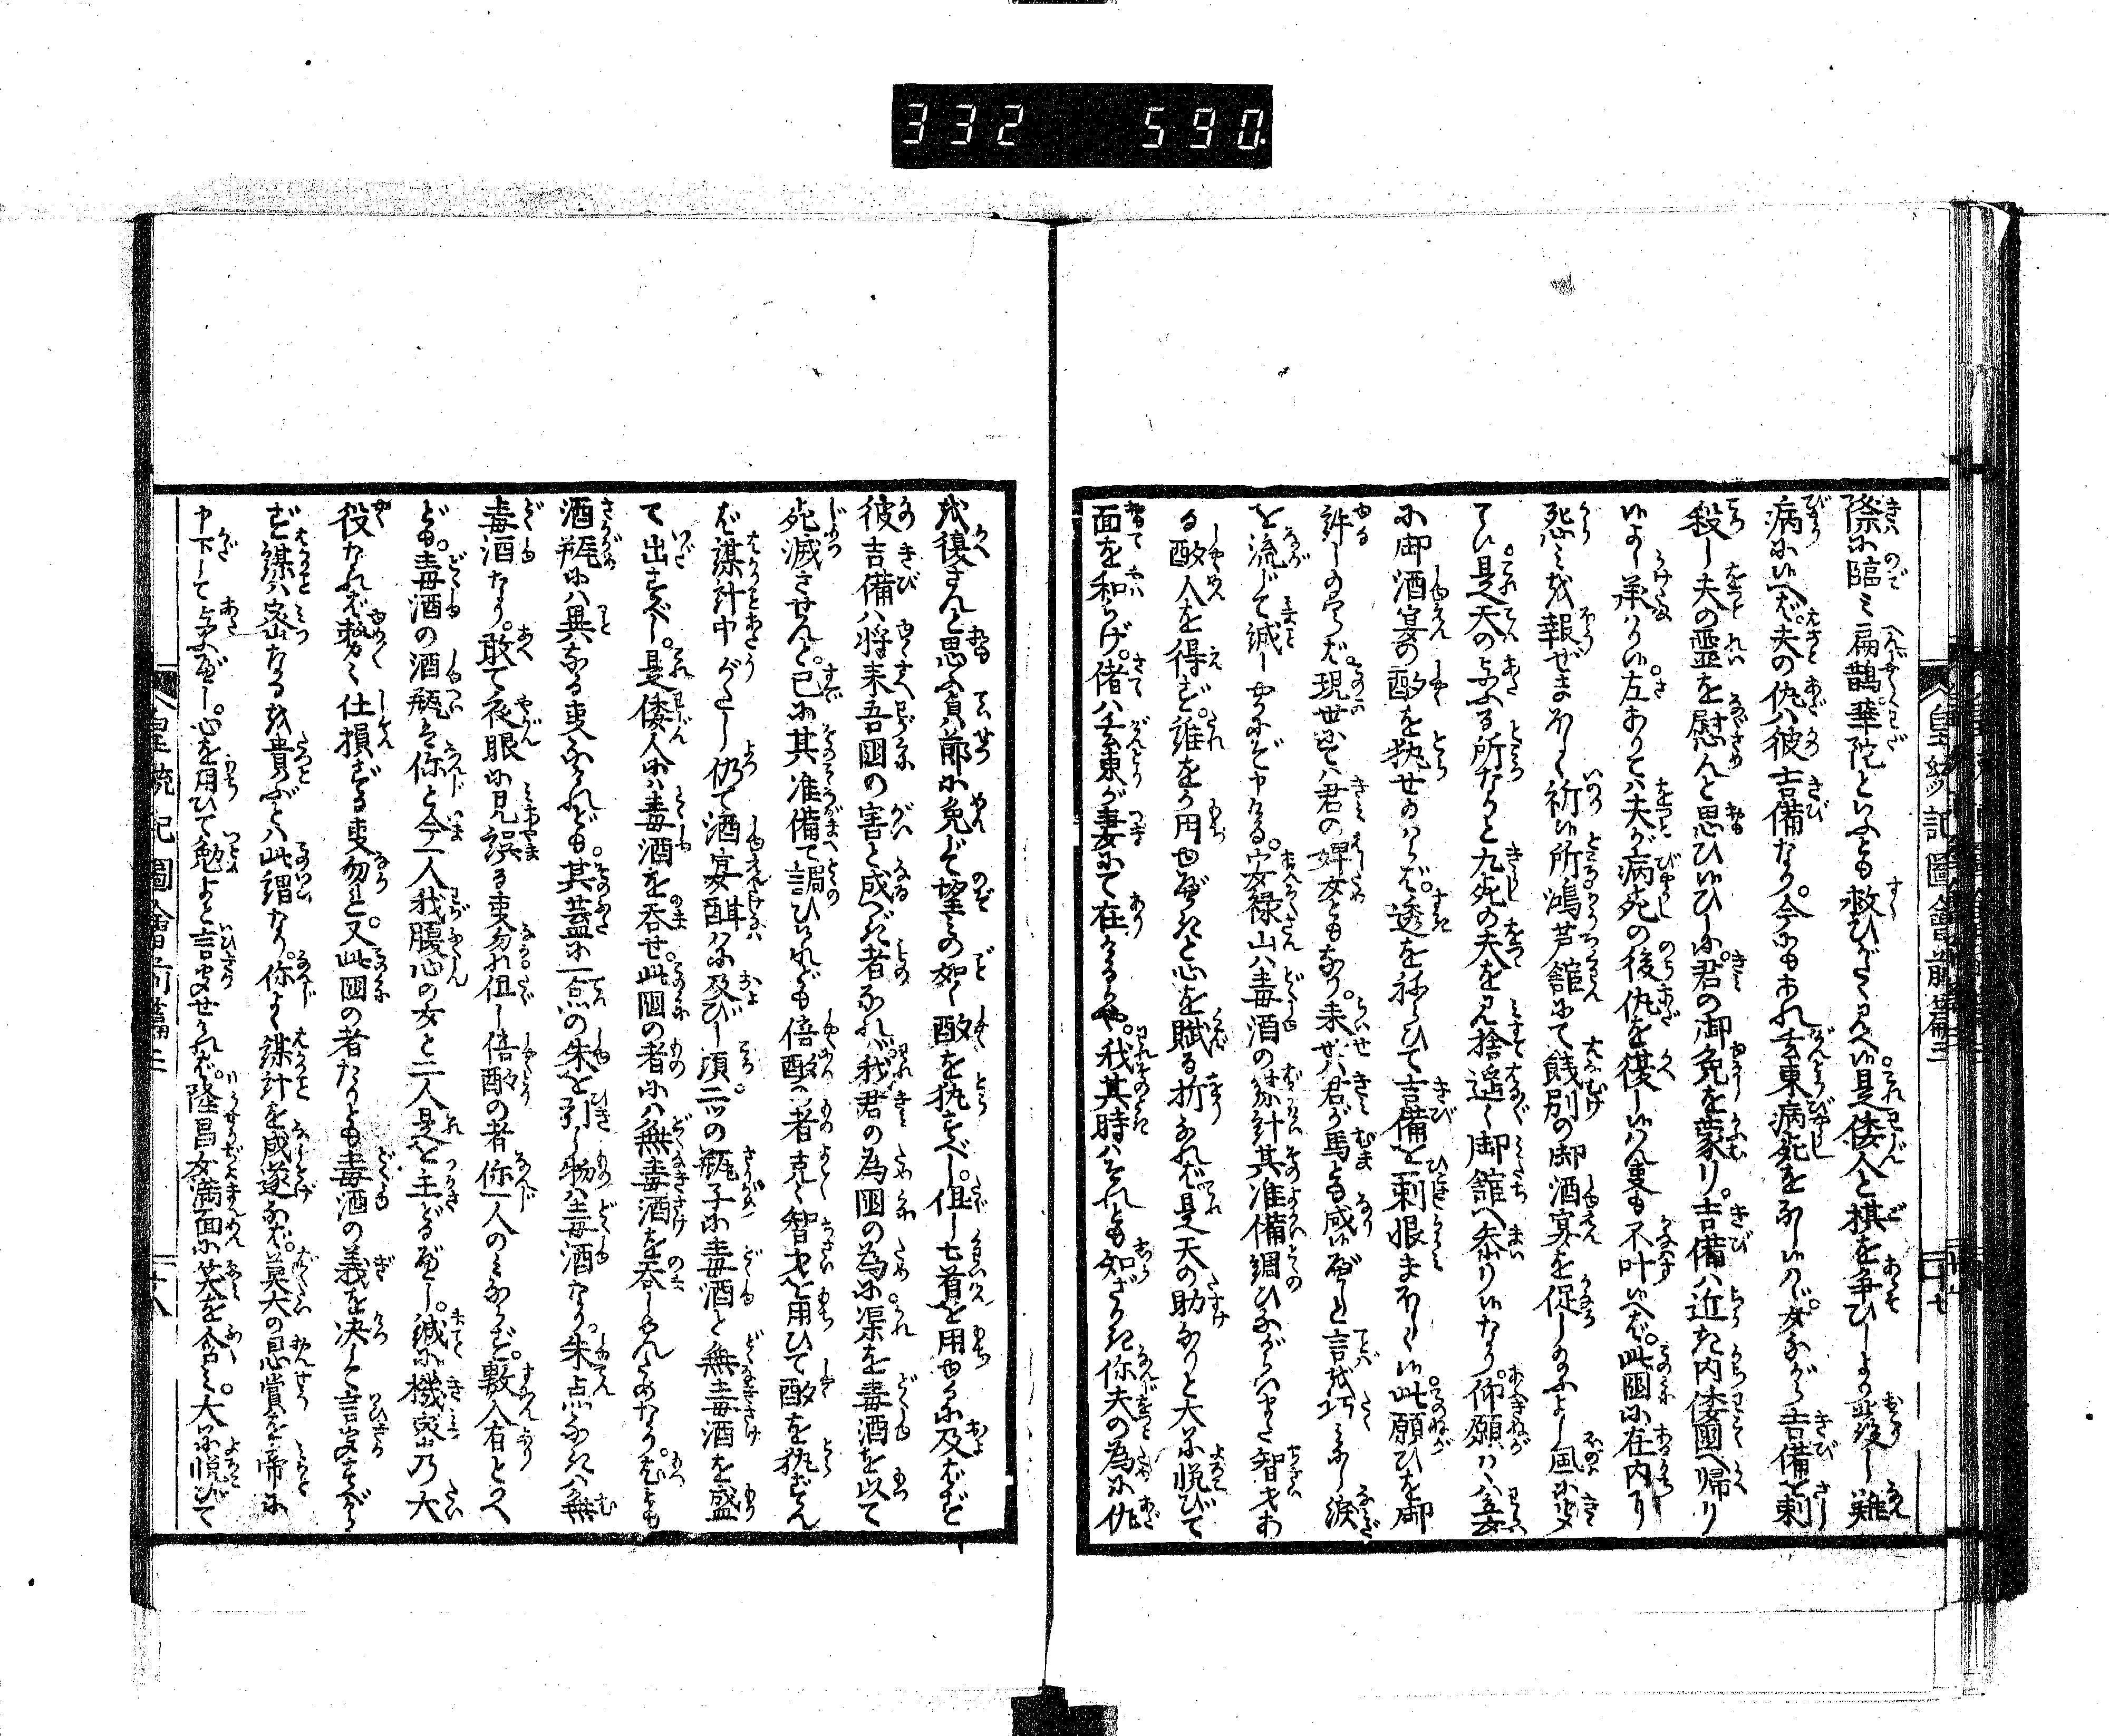 332 590
皇統記圖會前篇二
際に臨み扁鵲華陀といふとも救ひがたく見へ候是倭人と棋を争ひしより発し難
病に候へば夫の仇は彼吉備なり今にもあれ玄東病死をなし候はゞ女ながら吉備を刺
殺し夫の霊を慰んと思ひ候ひしに君の御免を蒙り吉備は近き内倭國へ帰り
候よし承はり候左ありては夫が病死の後仇を復し候はん事も不叶候へば此國に在内に
怨みを報ぜまほしく祈候所鴻芦舘にて餞別の御酒宴を促し給ふよし風に聞
て候是天の与ふる所なりと九死の夫を見捨遥〻御舘へ参り候なり仰願はくは妾
に御酒宴の酌を執せ給はらば透を祢らひて吉備を一刺恨まほしく候此願ひを御
許し給はらば現世にては君の婢女ともなり来世は君が馬とも成候べしと言を巧みになし涙
を流して誠しやかにぞ申ける安禄山は毒酒の謀計其准備調ひながらいまだ智才あ
る酌人を得ず誰をか用ゆべきと心を賦る折なれば是天の助なりと大に悦びて
面を和らげ偖は玄東が妻にて在けるや我其時はそれとも知ざりき你夫の為に仇
を復さんと思ふ貞節に免じ望みの如く酌を執すべし但し匕首を用ゆるに及ばず
彼吉備は将来吾國の害と成べき者なれば我君の為國の為に渠を毒酒を以て
死滅させんと已に其准備て調ひけれども倍酌の者克く智才を用ひて酌を執ずん
ば謀計中がたし仍て酒宴酣はに及びし頃二ツの瓶子に毒酒と無毒酒を盛
て出すべし是倭人には毒酒を呑せ此國の者には無毒酒を呑しめんためなり尤も
酒瓶には異なる事なけれども其蓋に一点の朱を引し物は毒酒なり朱点なきは無
毒酒なり敢て夜眼に見誤る事勿れ但し倍酌の者你一人のみならず数人有といへ
ども毒酒の酒瓶は你と今一人我腹心の女と二人是を主どるべし誠に機密の大
役なれば努〻仕損ずる事勿れと又此國の者たりとも毒酒の義を決して言哀すべから
ず謀は密なるを貴ぶとは此謂なり你よく謀計を成遂なば莫大の恩賞を帝に
申下して与ふべし心を用ひて勉よと言哀せければ隆昌女満面に笑を含み大に悦びて
皇統記圖會前篇二
十八